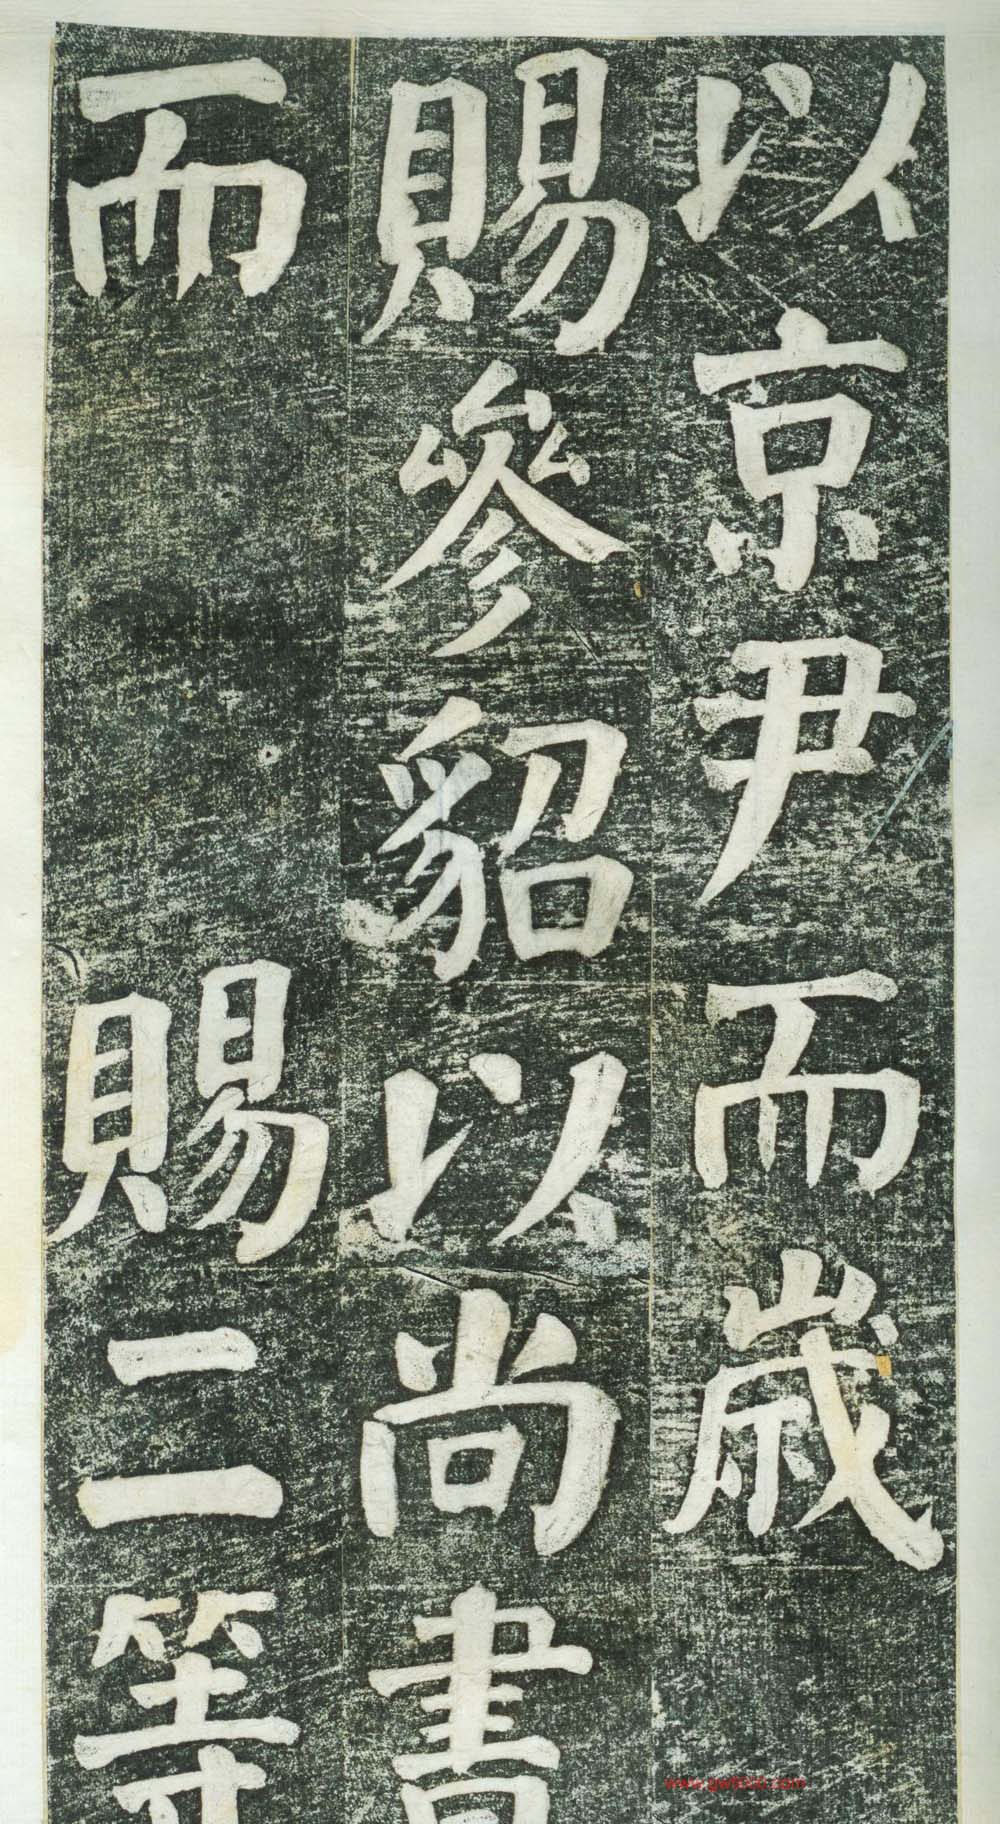 以京尹而歲
賜參貂以尚書
而賜二等
www.gw5000.com